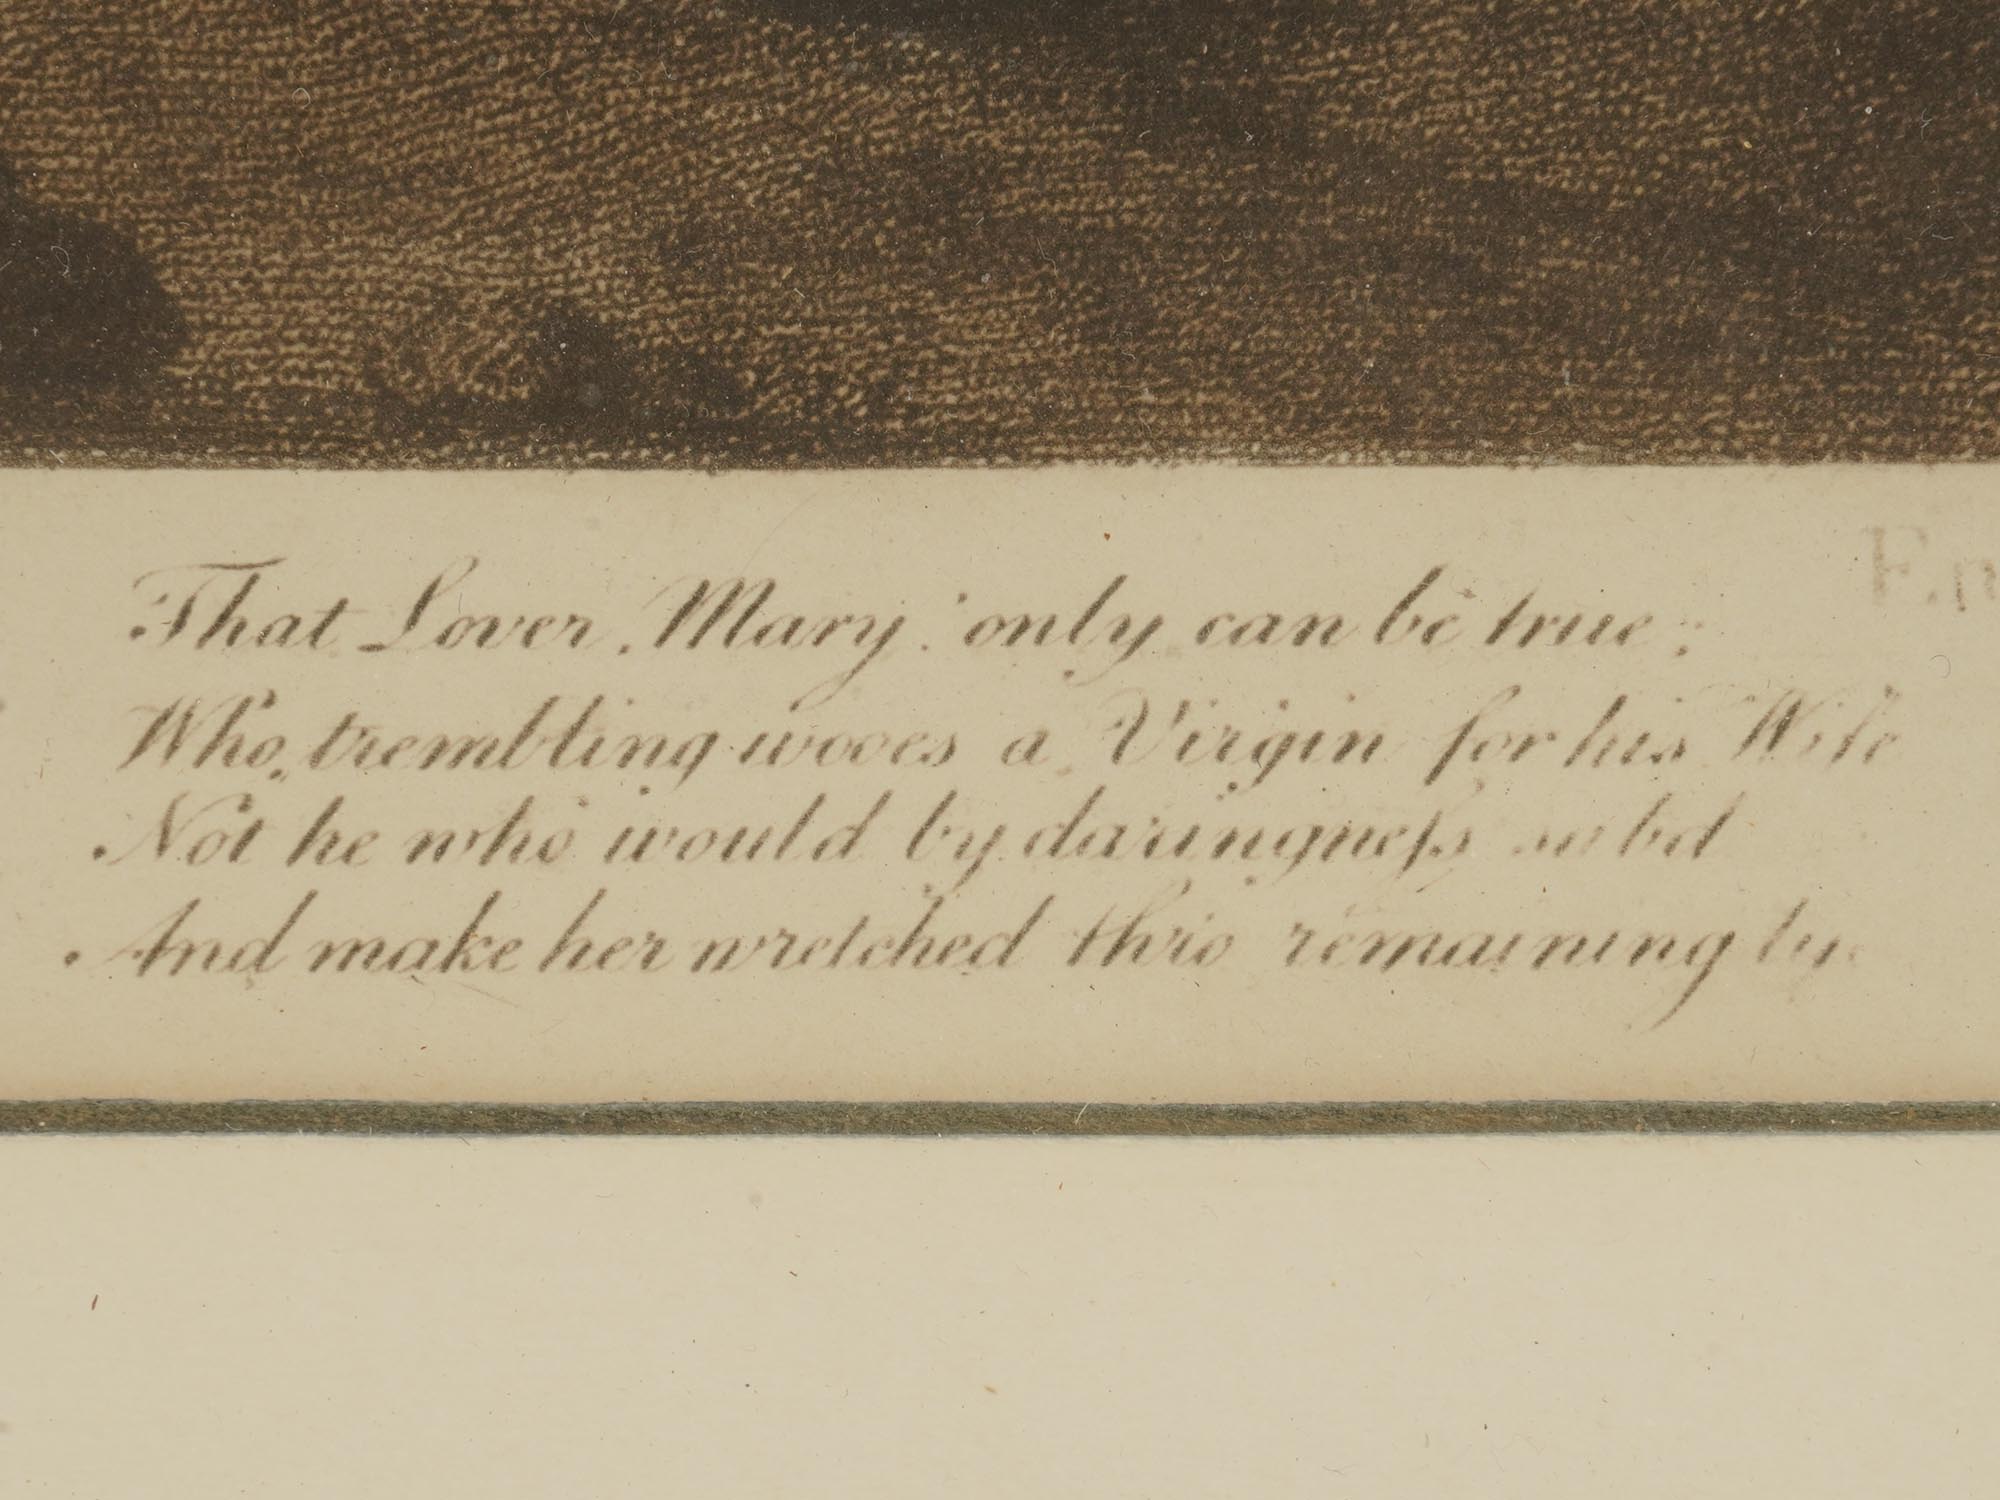 That Lover, Mary, only can be true;
Who, trembling wooes a Virgin for his Wife
Not he who would by daringneſs
And make her wretched thrio remaining